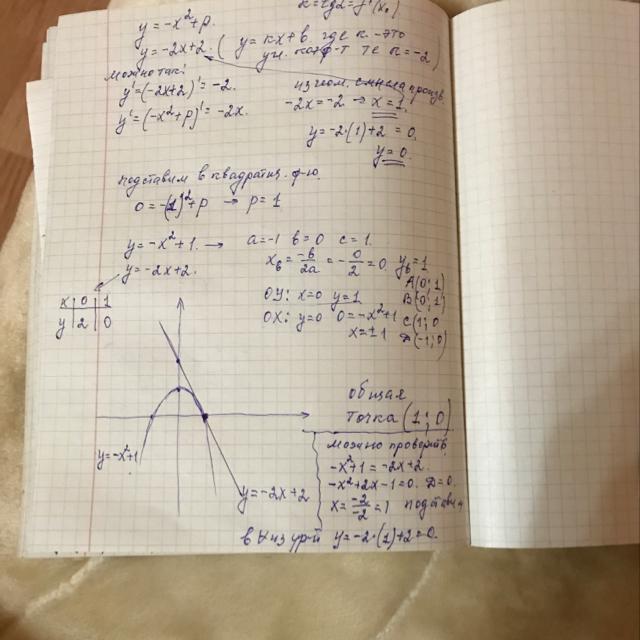 k=tgα=f'(x₀)
y=-x²+p.
y=-2x+2. (y=kx+b, где k-это
уг. коэф-т те k=-2)
можно так:
y'=(-2x+2)'=-2.
из геом. смысла произв.
y'=(-x²+p)'=-2x.
-2x=-2 → x=1.
y=-2·(1)+2=0.
y=0.
подставим в квадратич. ф-ю.
0=-(1)²+p → p=1
y=-x²+1. → a=-1 b=0 c=1.
y=-2x+2.
xв=-b/2a=-0/2=0. yв=1
A(0;1)
x 0 1
y 2 0
OY: x=0 y=1 B(0;1)
OX: y=0 0=-x²+1 C(1;0
x=±1 D(-1;0)
общая
точка (1;0)
y=-x²+1
y=-2x+2
можно проверить
-x²+1=-2x+2
-x²+2x-1=0. D=0.
x=-2/-2=1 подставим
в ∀ из ур-й y=-2·(1)+2=0.